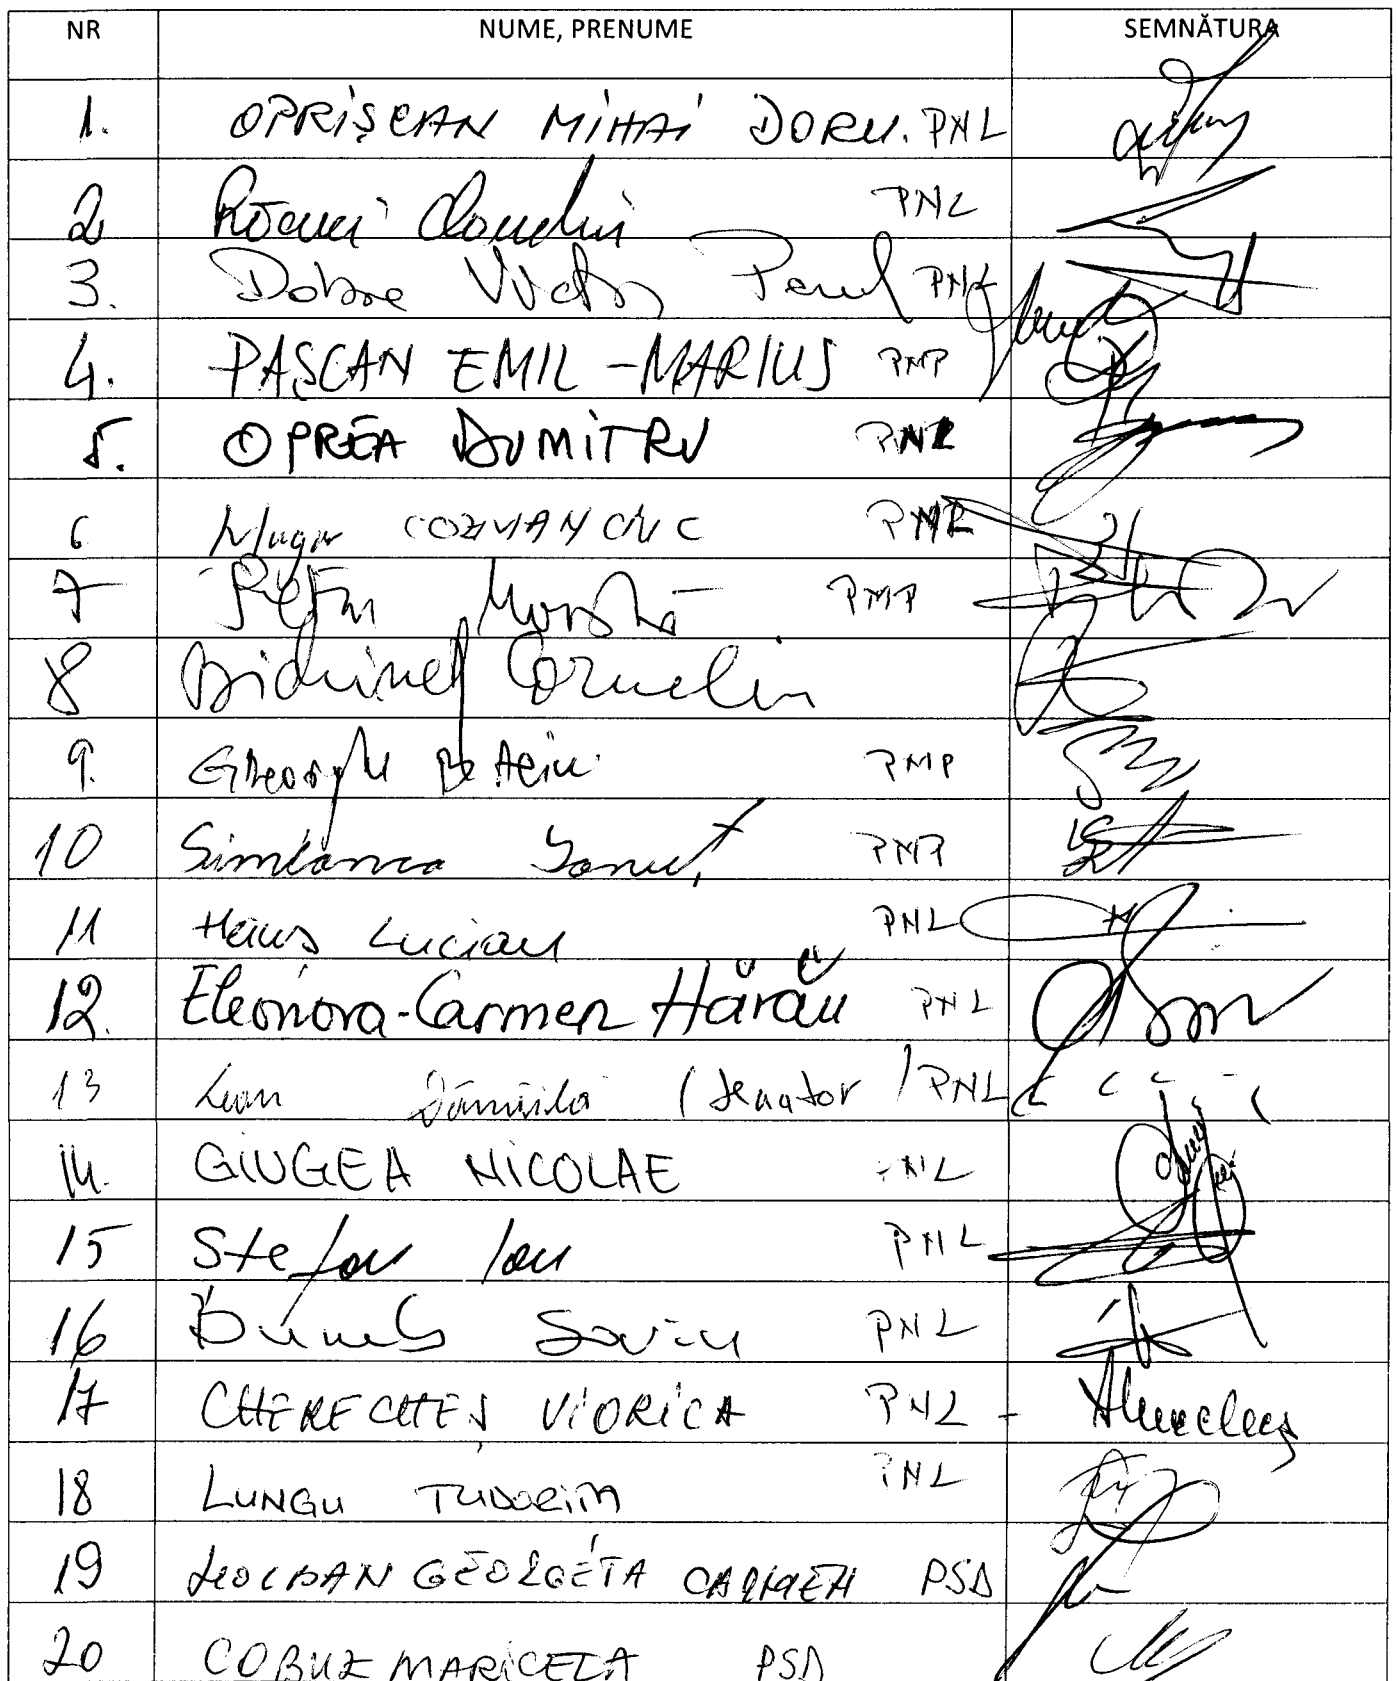 NR NUME, PRENUME SEMNĂTURA
1. OPRIȘCAN MIHAI DORU. PNL
2 Roman Claudiu PNL
3. Dobre Victor Paul PNL
4. PAȘCAN EMIL-MARIUS PMP
5. OPREA DUMITRU PNL
6 Mugur COZMANCIUC PNL
7 Petru Movilă PMP
8 Bichineț Corneliu
9. Gheorghe PMP
10 Simionca Ionuț PMP
11 Heius Lucian PNL
12. Eleonora-Carmen Hărău PNL
13 Dănăilă (senator) PNL
14. GIUGEA NICOLAE PNL
15 Stefan Ion PNL
16 Sorin PNL
17 CHERECHEȘ VIORICA PNL -
18 LUNGU TUDORIȚA PNL
19 GEORGETA CARMEN PSD
20 COBUZ MARICELA PSD